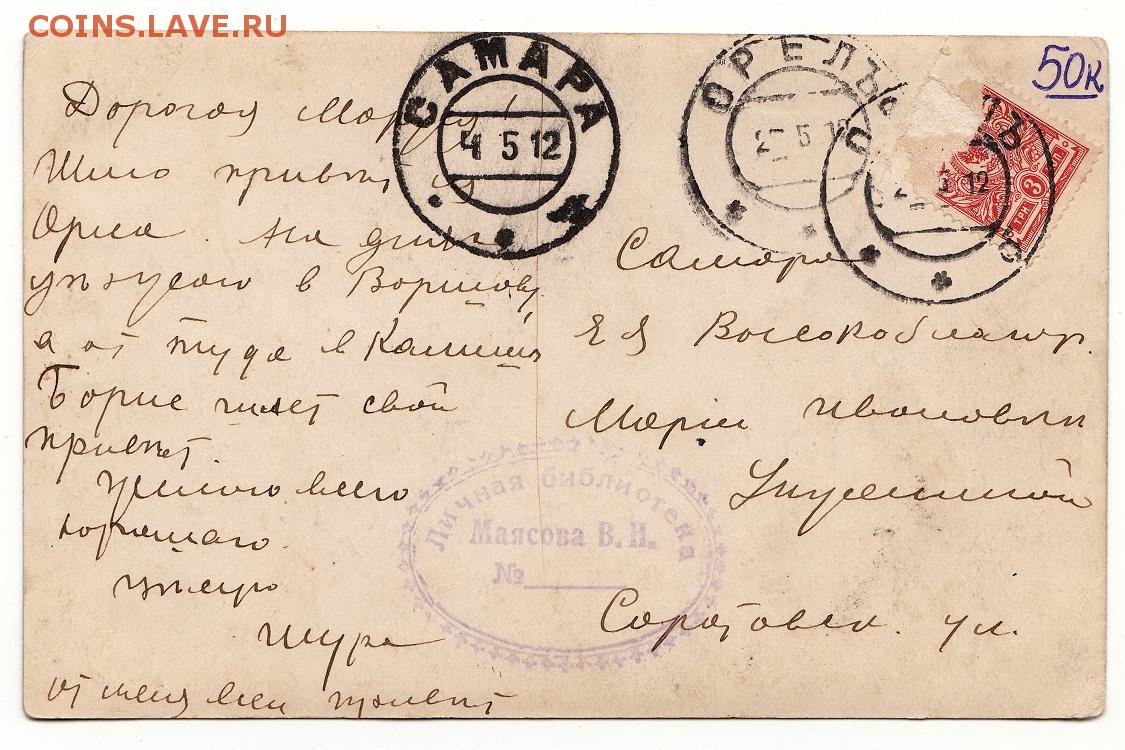 COINS.LAVE.RU
50к
САМАРА
4 5 12
ОРЕЛЪ
2 5 12
12
ТРИ 3 КОП
Дорогая
Шлю привѣт из
Орла. На днях
уѣзжаю в Варшаву,
а от туда в Калиш
Борис шлет свой
привѣт.
Желаю всего
хорошаго.
Цѣлую
Шура
от меня всем привѣт
Самара
Ея Высокоблагор.
Маріи Ивановны
Саратовск. ул.
Личная библиотека
Маясова В. И.
№